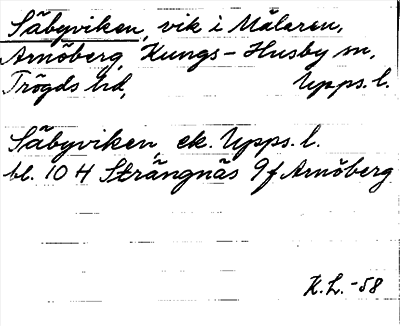 Säbyviken, vik i Mälaren,
Arnöberg, Kungs-Husby sn,
Trögds hd, Upps. l.
Säbyviken, ek. Upps. l.
bl. 10 H Strängnäs 9f Arnöberg
K.L.-58